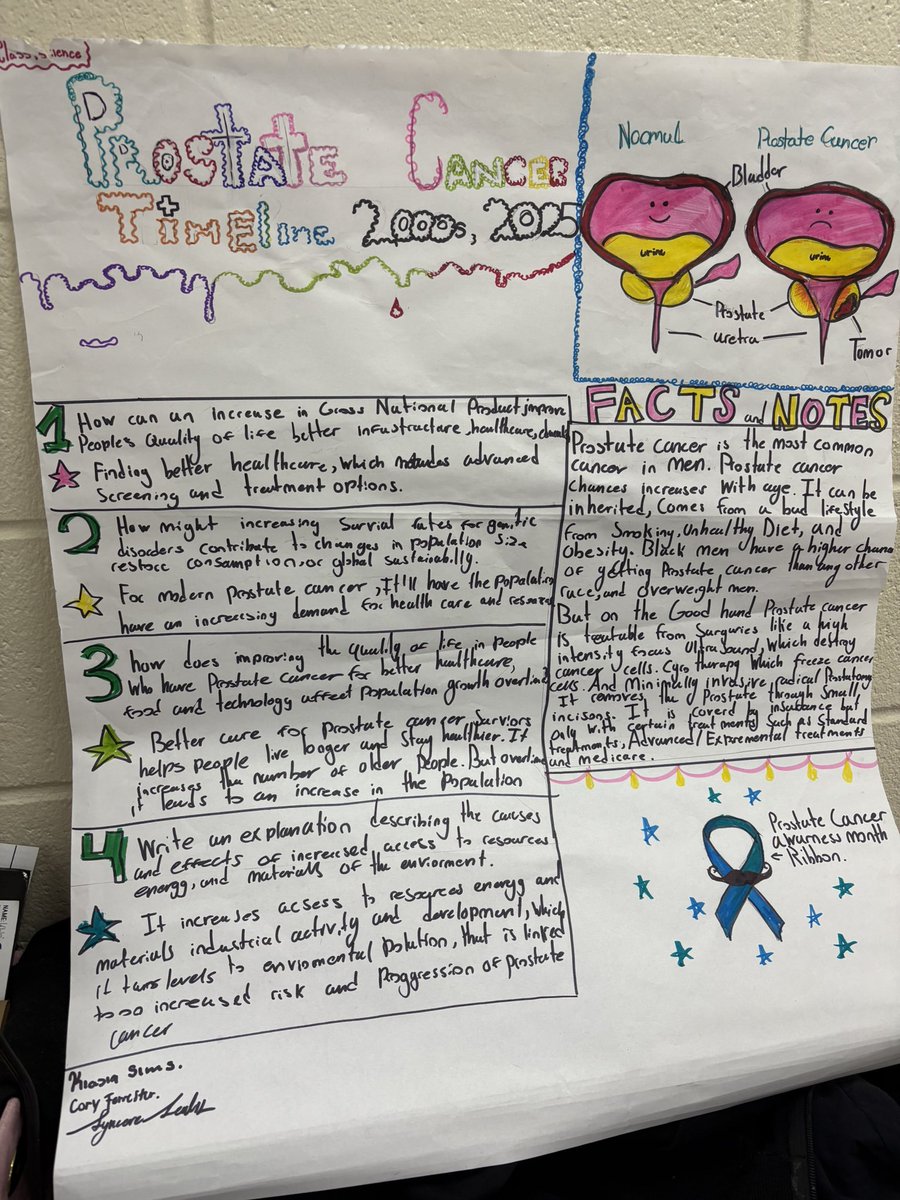 Class, science
Prostate Cancer
Timeline 2000s, 2025
Noomul Prostate Cancer
Bladder
urine urine
Prostate
uretra
Tomor
1 How can an increase in Gross National Product improve
People's Quality of life better infustructure, healthcare,
Finding better healthcare, which includes advanced
Screening and treatment options.
2 How might increasing Survial rates for genitic
disorders contribute to changes in population size
consumption, or global sustainabilly.
For modern prostate cancer, It'll have the population
have an increasing demand for health care and
3 how does improving the quality of life in people
Who have Prostate Cancer for better healthcare,
food and technology affect population growth overtime
Better care for Prostate cancer Surviors
helps people live longer and stay healthier. It
increases the number of older People. But overtime
it leads to an increase in the Population
4 Write an explanation describing the causes
and effects of increased, access to resources
energy, and materials of the enviorment.
It increases acsess to resources energy and
materials industrial activity and development, which
it turns levels to enviomental polution, that is linked
to increased risk and Proggression of prostate
cancer
FACTS and NOTES
Prostate cancer is the most common
cancer in men. Prostate cancer
chances increases with age. It can be
inherited, Comes from a bad lifestyle
from Smoking, Unhealthy Diet, and
Obesity. Black men have a higher
of getting Prostate cancer than any other
race, and overweight men.
But on the Good hand Prostate cancer
is treatable from Surguries like a high
intensity focus Ultrasound, Which destroy
cancer cells. Cyro therapy Which freeze cancer
cells. And Minimally invasive radical
It removes the Prostate through Small
incisons. It is coverd by insubance but
only with certain treatments such as Standard
treatments, Advanced/Expremental treatments
and medicare.
Prostate Cancer
awarness month
Ribbon.
Kiasia Sims.
Cory Forrester.